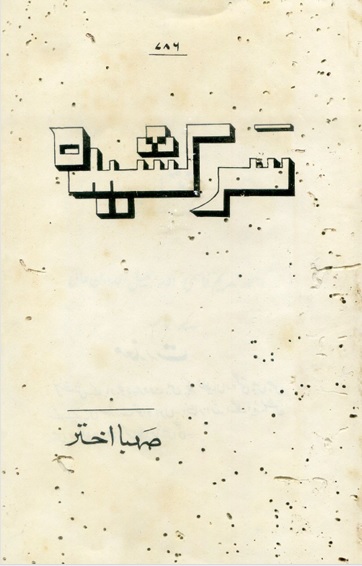 ۷۸۶
سَرکشیدہ
صہبا اختر